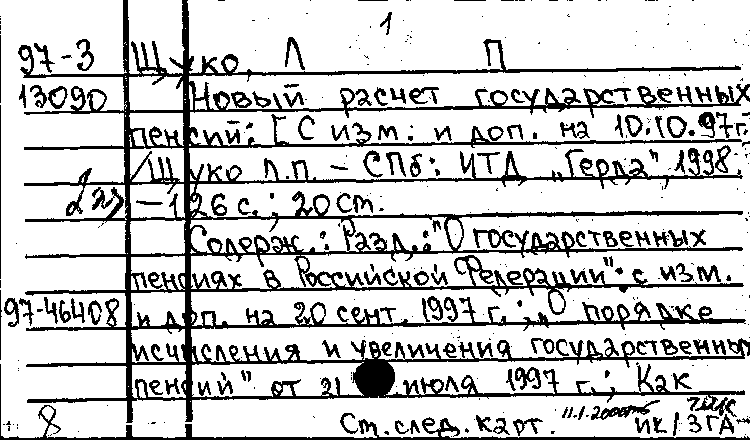 1
97-3 Щуко, Л П
13090 Новый расчет государственных
пенсий: [С изм. и доп. на 10.10.97г.
/Щуко Л.П. – СПб: ИТД „Герда", 1998.
– 126 с.; 20 ст.
Содерж.: Разд.: "О государственных
пенсиях в Российской Федерации": с изм.
97-46408 и доп. на 20 сент. 1997 г.; „О порядке
исчисления и увеличения государственных
пенсий" от 21 июля 1997 г.; Как
8 Ст. след. карт. ИК/ЗГА